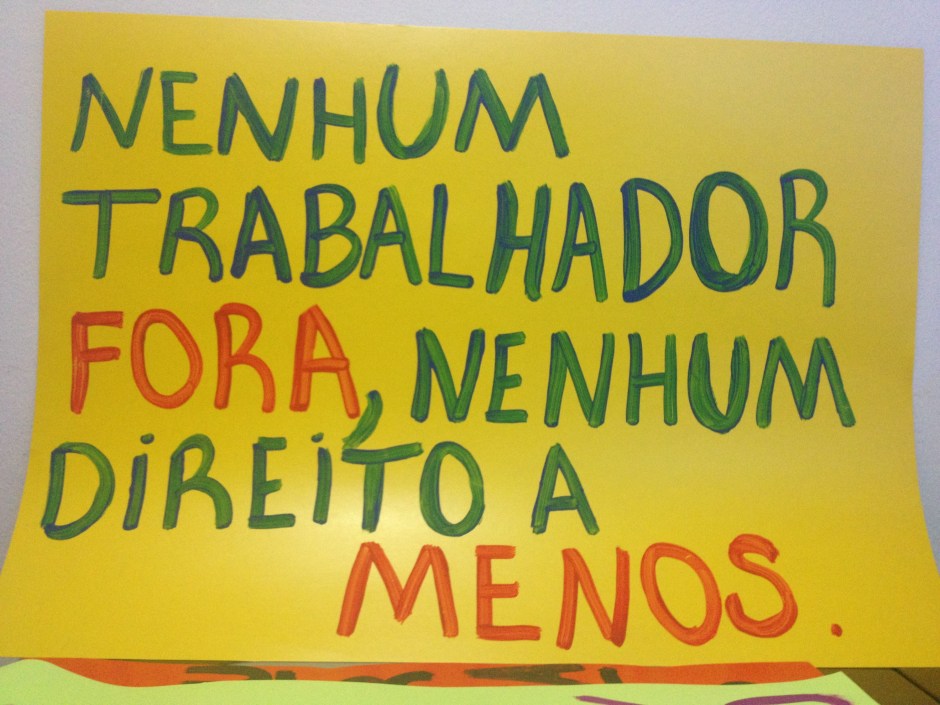 NENHUM
TRABALHADOR
FORA, NENHUM
DIREITO A
MENOS.